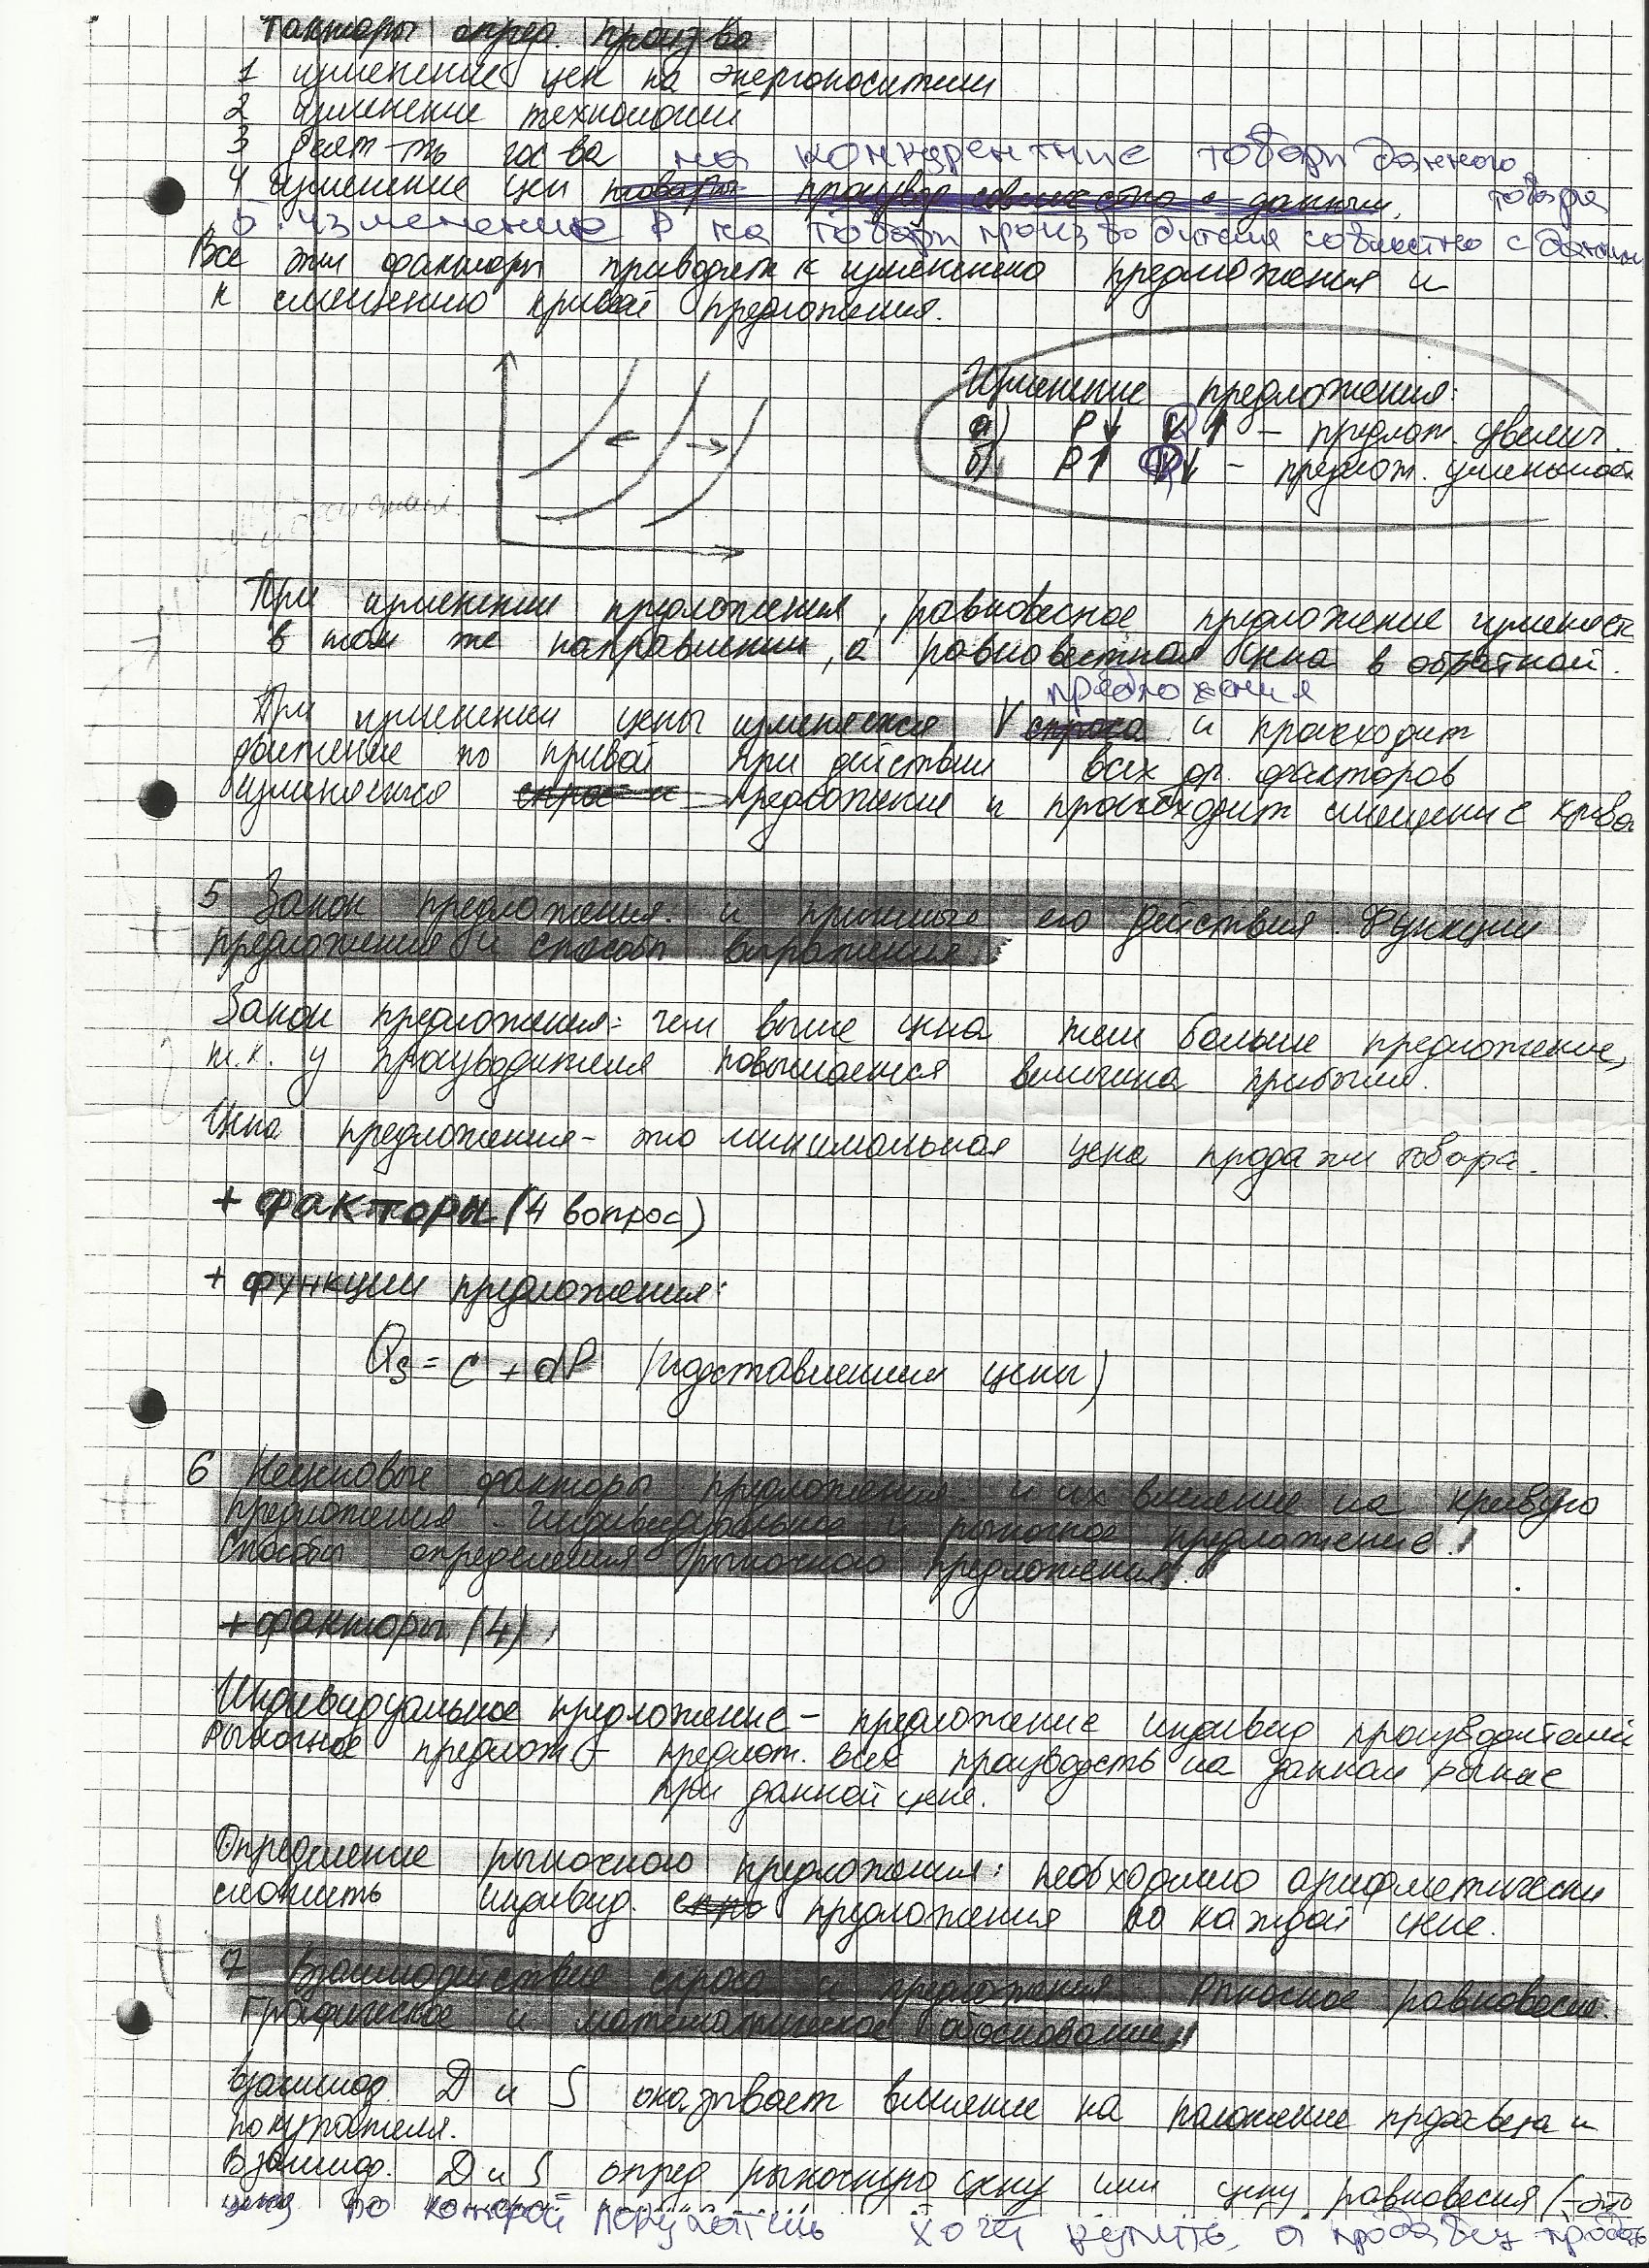 Факторы опред. произ-ва
1 изменение цен на энергоносители
2 изменение технологии
3 деят-ть гос-ва
4 изменение цен на конкурентние товари данного товара
5. изменение P на товари производителя совместно с данним
Все эти факторы приводят к изменению предложения и
к смещению кривой предложения.
Изменение предложения:
а) P↓ Q↑ – предлож. увелич.
б) P↑ Q↓ – предлож. уменьшает
При изменении предложения, равновесное предложение изменяется
в том же направлении, а равновестная цена в обратной.
предложения
При изменении цены изменяется V спроса и происходит
движение по кривой при действии всех др. факторов
изменяется спрос и предложение и происходит смещение криво
5 Закон предложения и причины его действия. Функции
предложения и способы выражения
Закон предложения: чем выше цена тем больше предложение,
т.к. у производителя повышается величина прибыли.
Цена предложения – это минимальная цена продажи товара.
+ факторы (4 вопрос)
+ функции предложения:
Qs = c + dP (подставляем цены)
6 Неценовые факторы предложения и их влияние на кривую
предложения. Индивидуальное и рыночное предложение.
Способы определения рыночного предложения.
+ факторы (4)
Индивидуальное предложение – предложение индивид производителей
Рыночное предлож – предлож. всех производсть на данном рынке
при данной цене.
Определение рыночного предложения: необходимо арифметически
сложить индивид. спро предложения по каждой цене.
7 Взаимодействие спроса и предложения Рыночное равновесие.
Графическое и математическое обоснование
Взаимод. D и S оказывает влияние на положение продавца и
покупателя.
Взаимод. D и S опред рыночную цену или цену равновесия (-это
цена по которой покупатель хочет купить, а продавец продать